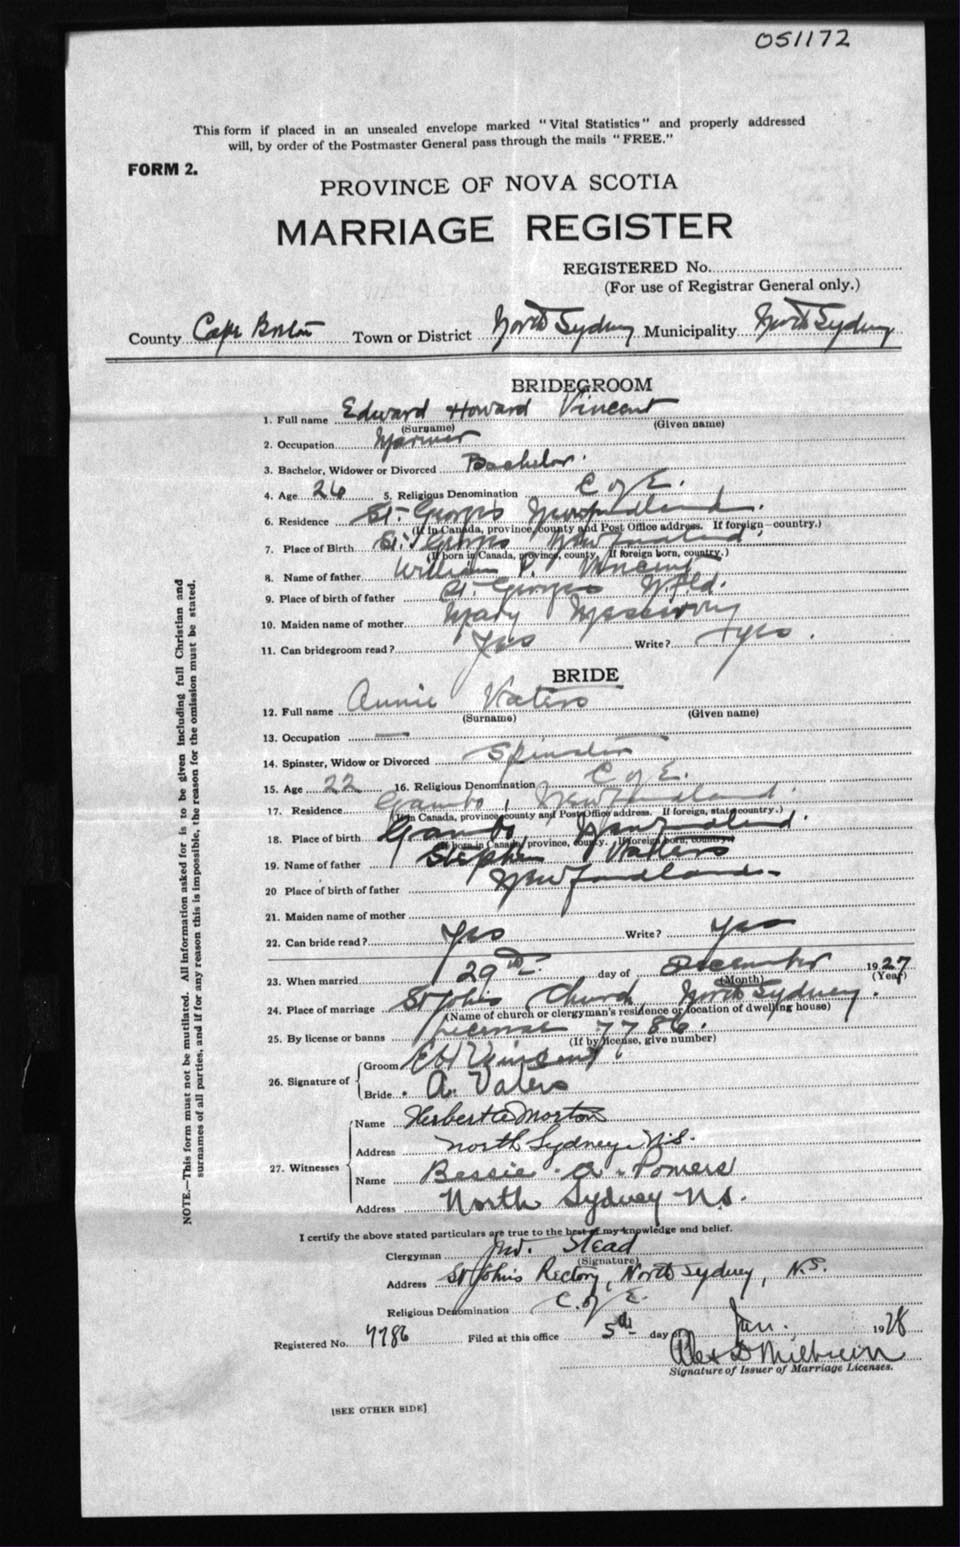 051172
This form if placed in an unsealed envelope marked "Vital Statistics" and properly addressed
will, by order of the Postmaster General pass through the mails "FREE."
FORM 2.
PROVINCE OF NOVA SCOTIA
MARRIAGE REGISTER
REGISTERED No.
(For use of Registrar General only.)
County Cape Breton Town or District North Sydney Municipality North Sydney
BRIDEGROOM
1. Full name Edward Howard Vincent
(Surname) (Given name)
2. Occupation Mariner
3. Bachelor, Widower or Divorced Bachelor.
4. Age 26 5. Religious Denomination C of E.
6. Residence St. Georges Newfoundland.
(If in Canada, province, county and Post Office address. If foreign—country.)
7. Place of Birth St. Georges Newfoundland.
(If born in Canada, province, county, If foreign born, country.)
8. Name of father William P. Vincent
9. Place of birth of father St. Georges Nfld.
10. Maiden name of mother Mary
11. Can bridegroom read? Yes Write? yes.
BRIDE
12. Full name Annie Vaters
(Surname) (Given name)
13. Occupation —
14. Spinster, Widow or Divorced Spinster
15. Age 22 16. Religious Denomination C of E.
17. Residence Gambo, Newfoundland.
(If in Canada, province, county and Post Office address. If foreign, state country.)
18. Place of birth Gambo, Newfoundland.
(If born in Canada, province, county. If foreign born, country.)
19. Name of father Stephen Vaters
20 Place of birth of father Newfoundland—
21. Maiden name of mother
22. Can bride read? Yes Write? Yes
23. When married 29th day of December 1927
(Month) (Year)
24. Place of marriage St Johns Church, North Sydney.
(Name of church or clergyman's residence or location of dwelling house)
25. By license or banns License 7786.
(If by license, give number)
26. Signature of Groom E H Vincent
Bride A. Vaters
27. Witnesses Name Herbert A Morton
Address North Sydney N.S.
Name Bessie A. Somers
Address North Sydney N.S.
I certify the above stated particulars are true to the best of my knowledge and belief.
Clergyman Jno. Stead
(Signature)
Address St John's Rectory, North Sydney, N.S.
Religious Denomination C. of E.
Registered No. 7786 Filed at this office 5th day of Jan. 1928
Signature of Issuer of Marriage Licenses.
[SEE OTHER SIDE]
NOTE.—This form must not be mutilated. All information asked for is to be given including full Christian and
surnames of all parties, and if for any reason this is impossible, the reason for the omission must be stated.